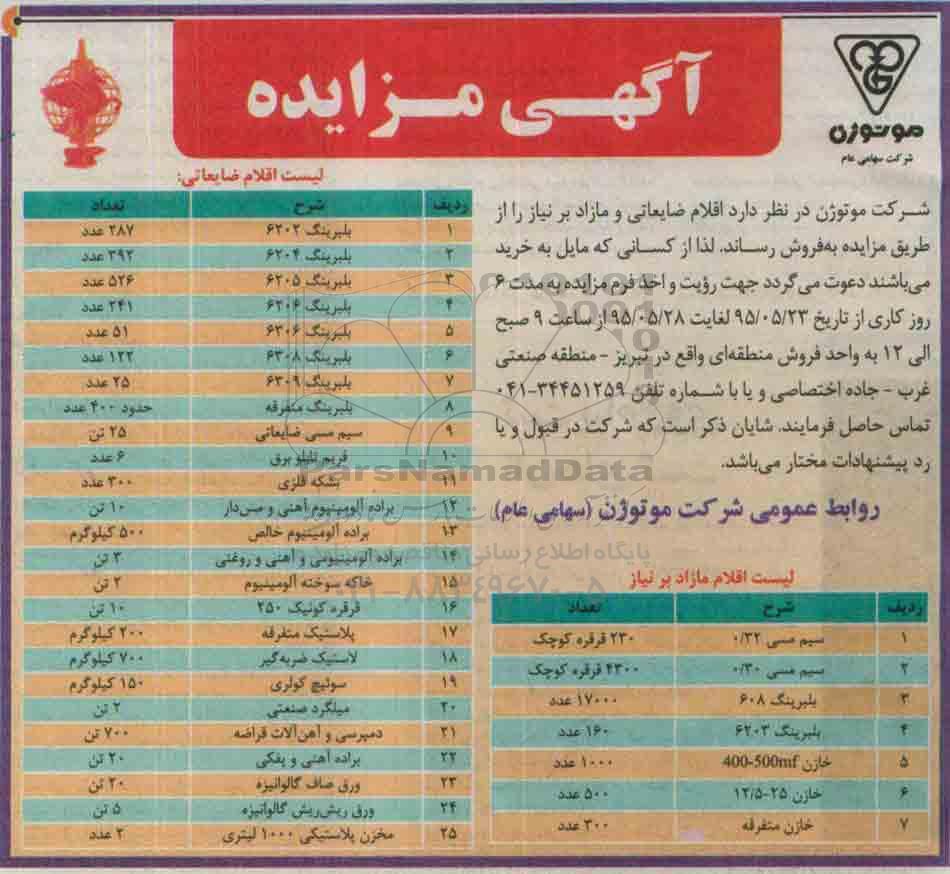 آگهی مزایده
موتوژن
شرکت سهامی عام
شرکت موتوژن در نظر دارد اقلام ضایعاتی و مازاد بر نیاز را از
طریق مزایده به‌فروش رساند. لذا از کسانی که مایل به خرید
می‌باشند دعوت می‌گردد جهت رؤیت و اخذ فرم مزایده به مدت ۶
روز کاری از تاریخ ۹۵/۰۵/۲۳ لغایت ۹۵/۰۵/۲۸ از ساعت ۹ صبح
الی ۱۲ به واحد فروش منطقه‌ای واقع در تبریز - منطقه صنعتی
غرب - جاده اختصاصی و یا با شماره تلفن ۳۴۴۵۱۲۵۹-۰۴۱
تماس حاصل فرمایند. شایان ذکر است که شرکت در قبول و یا
رد پیشنهادات مختار می‌باشد.
روابط عمومی شرکت موتوژن (سهامی عام)
لیست اقلام مازاد بر نیاز
ردیف شرح تعداد
۱ سیم مسی ۰/۳۲ ۲۳۰ قرقره کوچک
۲ سیم مسی ۰/۳۰ ۴۳۰۰ قرقره کوچک
۳ بلبرینگ ۶۰۸ ۱۷۰۰۰ عدد
۴ بلبرینگ ۶۲۰۳ ۱۶۰ عدد
۵ خازن 400-500mf ۱۰۰۰ عدد
۶ خازن ۲۵-۱۲/۵ ۵۰۰ عدد
۷ خازن متفرقه ۳۰۰ عدد
لیست اقلام ضایعاتی:
ردیف شرح تعداد
۱ بلبرینگ ۶۲۰۲ ۲۸۷ عدد
۲ بلبرینگ ۶۲۰۴ ۳۹۲ عدد
۳ بلبرینگ ۶۲۰۵ ۵۲۶ عدد
۴ بلبرینگ ۶۲۰۶ ۲۴۱ عدد
۵ بلبرینگ ۶۳۰۶ ۵۱ عدد
۶ بلبرینگ ۶۳۰۸ ۱۲۲ عدد
۷ بلبرینگ ۶۳۰۹ ۲۵ عدد
۸ بلبرینگ متفرقه حدود ۴۰۰ عدد
۹ سیم مسی ضایعاتی ۲۵ تن
۱۰ فریم تابلو برق ۶ عدد
۱۱ بشکه فلزی ۳۰۰ عدد
۱۲ براده آلومینیوم آهنی و مس‌دار ۱۰ تن
۱۳ براده آلومینیوم خالص ۵۰۰ کیلوگرم
۱۴ براده آلومینیومی و آهنی و روغنی ۳ تن
۱۵ خاکه سوخته آلومینیوم ۲ تن
۱۶ قرقره کونیک ۲۵۰ ۱۰ تن
۱۷ پلاستیک متفرقه ۲۰۰ کیلوگرم
۱۸ لاستیک ضربه‌گیر ۷۰۰ کیلوگرم
۱۹ سوئیچ کولری ۱۵۰ کیلوگرم
۲۰ میلگرد صنعتی ۲ تن
۲۱ دمپرسی و آهن‌آلات قراضه ۷۰۰ تن
۲۲ براده آهنی و پفکی ۲۰ تن
۲۳ ورق صاف گالوانیزه ۲۰ تن
۲۴ ورق ریش‌ریش گالوانیزه ۵ تن
۲۵ مخزن پلاستیکی ۱۰۰۰ لیتری ۲ عدد
ParsNamadData
پایگاه اطلاع رسانی
۰۲۱-۸۸۳۴۹۶۷۰-۵